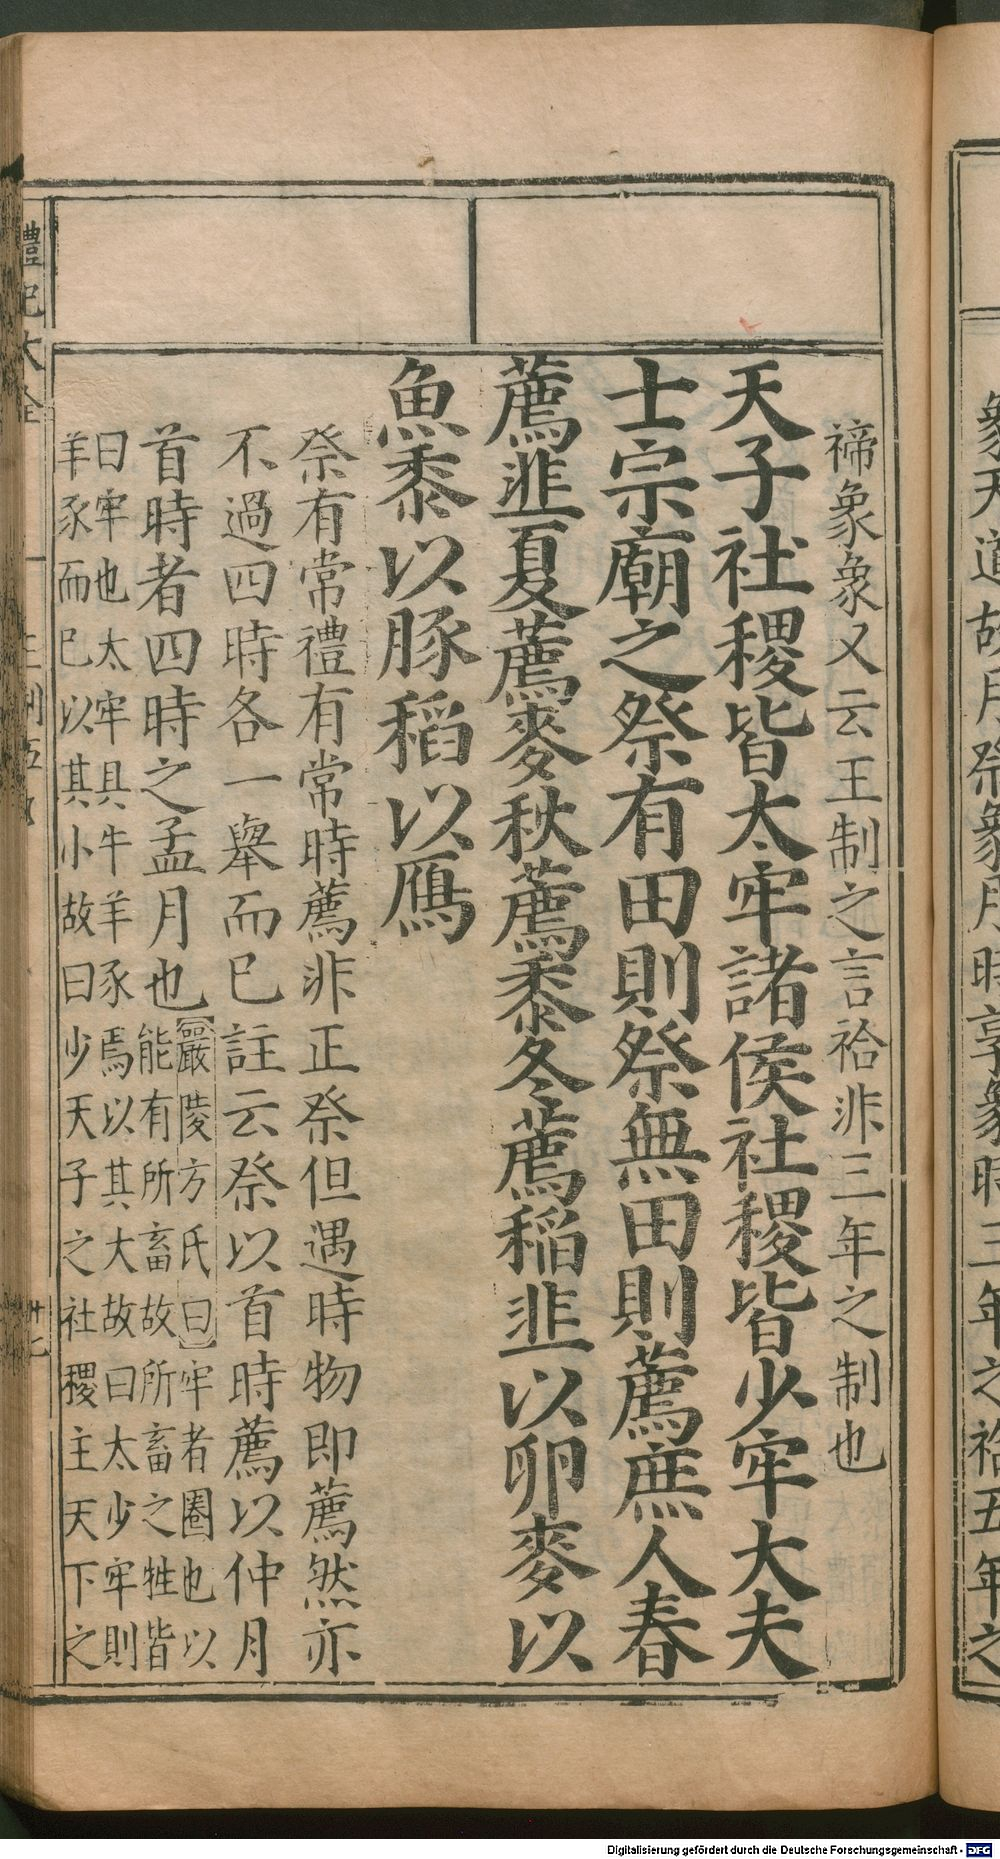 象天道故月祭象月時享象時三年之祫五年之
禘象象又云王制之言祫非三年之制也
天子社稷皆太牢諸侯社稷皆少牢大夫
士宗廟之祭有田則祭無田則薦庶人春
薦韭夏薦麥秋薦黍冬薦稲韭以卵麥以
魚黍以豚稻以鴈
祭有常禮有常時薦非正祭但遇時物即薦然亦
不過四時各一舉而已註云祭以首時薦以仲月
首時者四時之孟月也
嚴陵方氏曰牢者圈也以
能有所畜故所畜之牲皆
曰牢也太牢具牛羊豕焉以其大故曰太少牢則
羊豕而已以其小故曰少天子之社稷主天下之
禮記大全
王制五
廿七
Digitalisierung gefördert durch die Deutsche Forschungsgemeinschaft - DFG